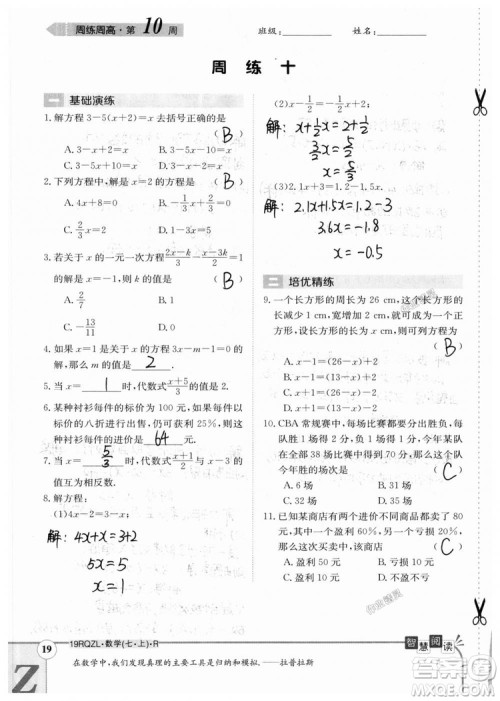 周练周高·第10周
班级: 姓名:
周练十
一 基础演练
1.解方程3-5(x+2)=x去括号正确的是
(B)
A.3-x+2=x B.3-5x-10=x
C.3-5x+10=x D.3-x-2=x
2.下列方程中,解是x=2的方程是(B)
A.4x+8=0 B.-1/3x+2/3=0
C.2/3x=2 D.1-3x=5
3.若关于x的一元一次方程(2x-k)/3-(x-3k)/2=1
的解是x=-1,则k的值是(B)
A.2/7 B.1
C.-13/11 D.0
4.如果x=1是关于x的方程3x-m=1的
解,那么m的值是 2 .
5.当x= 1 时,代数式(x+5)/3的值是2.
6.某种衬衫每件的标价为100元,如果每件
以8折出售,仍可获利25%,则这种
衬衫每件的进价是 64 元.
7.当x= 5/3 时,代数式(x+1)/2
值互为相反数.
8.解方程:
(1)4x-2=3-x;
解:4x+x=3+2
5x=5
x=1
(2)x-1/2=2-1/2x;
解:x+1/2x=2+1/2
3/2x=5/2
x=5/3
(3)2.1x+3=1.2-1.5x.
2.1x+1.5x=1.2-3
3.6x=-1.8
x=-0.5
二 培优精练
9.一个长方形的周长为26 cm,这个长方形的
长减少1 cm,宽增加2 cm,就可成为一个正
方形,设长方形的长为x cm,则可列方程为
(B)
A.x-1=(26-x)+2
B.x-1=(13-x)+2
C.x+1=(26-x)-2
D.x+1=(13-x)-2
10.CBA常规赛中,每场比赛都要分出胜负,每
队胜1场得2分,负1场得1分,
今年胜的场次是(C)
A.6场 B.31场
C.32场 D.35场
11.已知某商店有两个进价不同的商品都卖了
在这次买卖中,该商店(C)
A.盈利50元 B.亏损10元
C.盈利10元 D.不盈不亏
19
19RQZL·数学(七·上)·R
在数学中,我们发现真理的主要工具是归纳和模拟.——拉普拉斯
智慧阅读